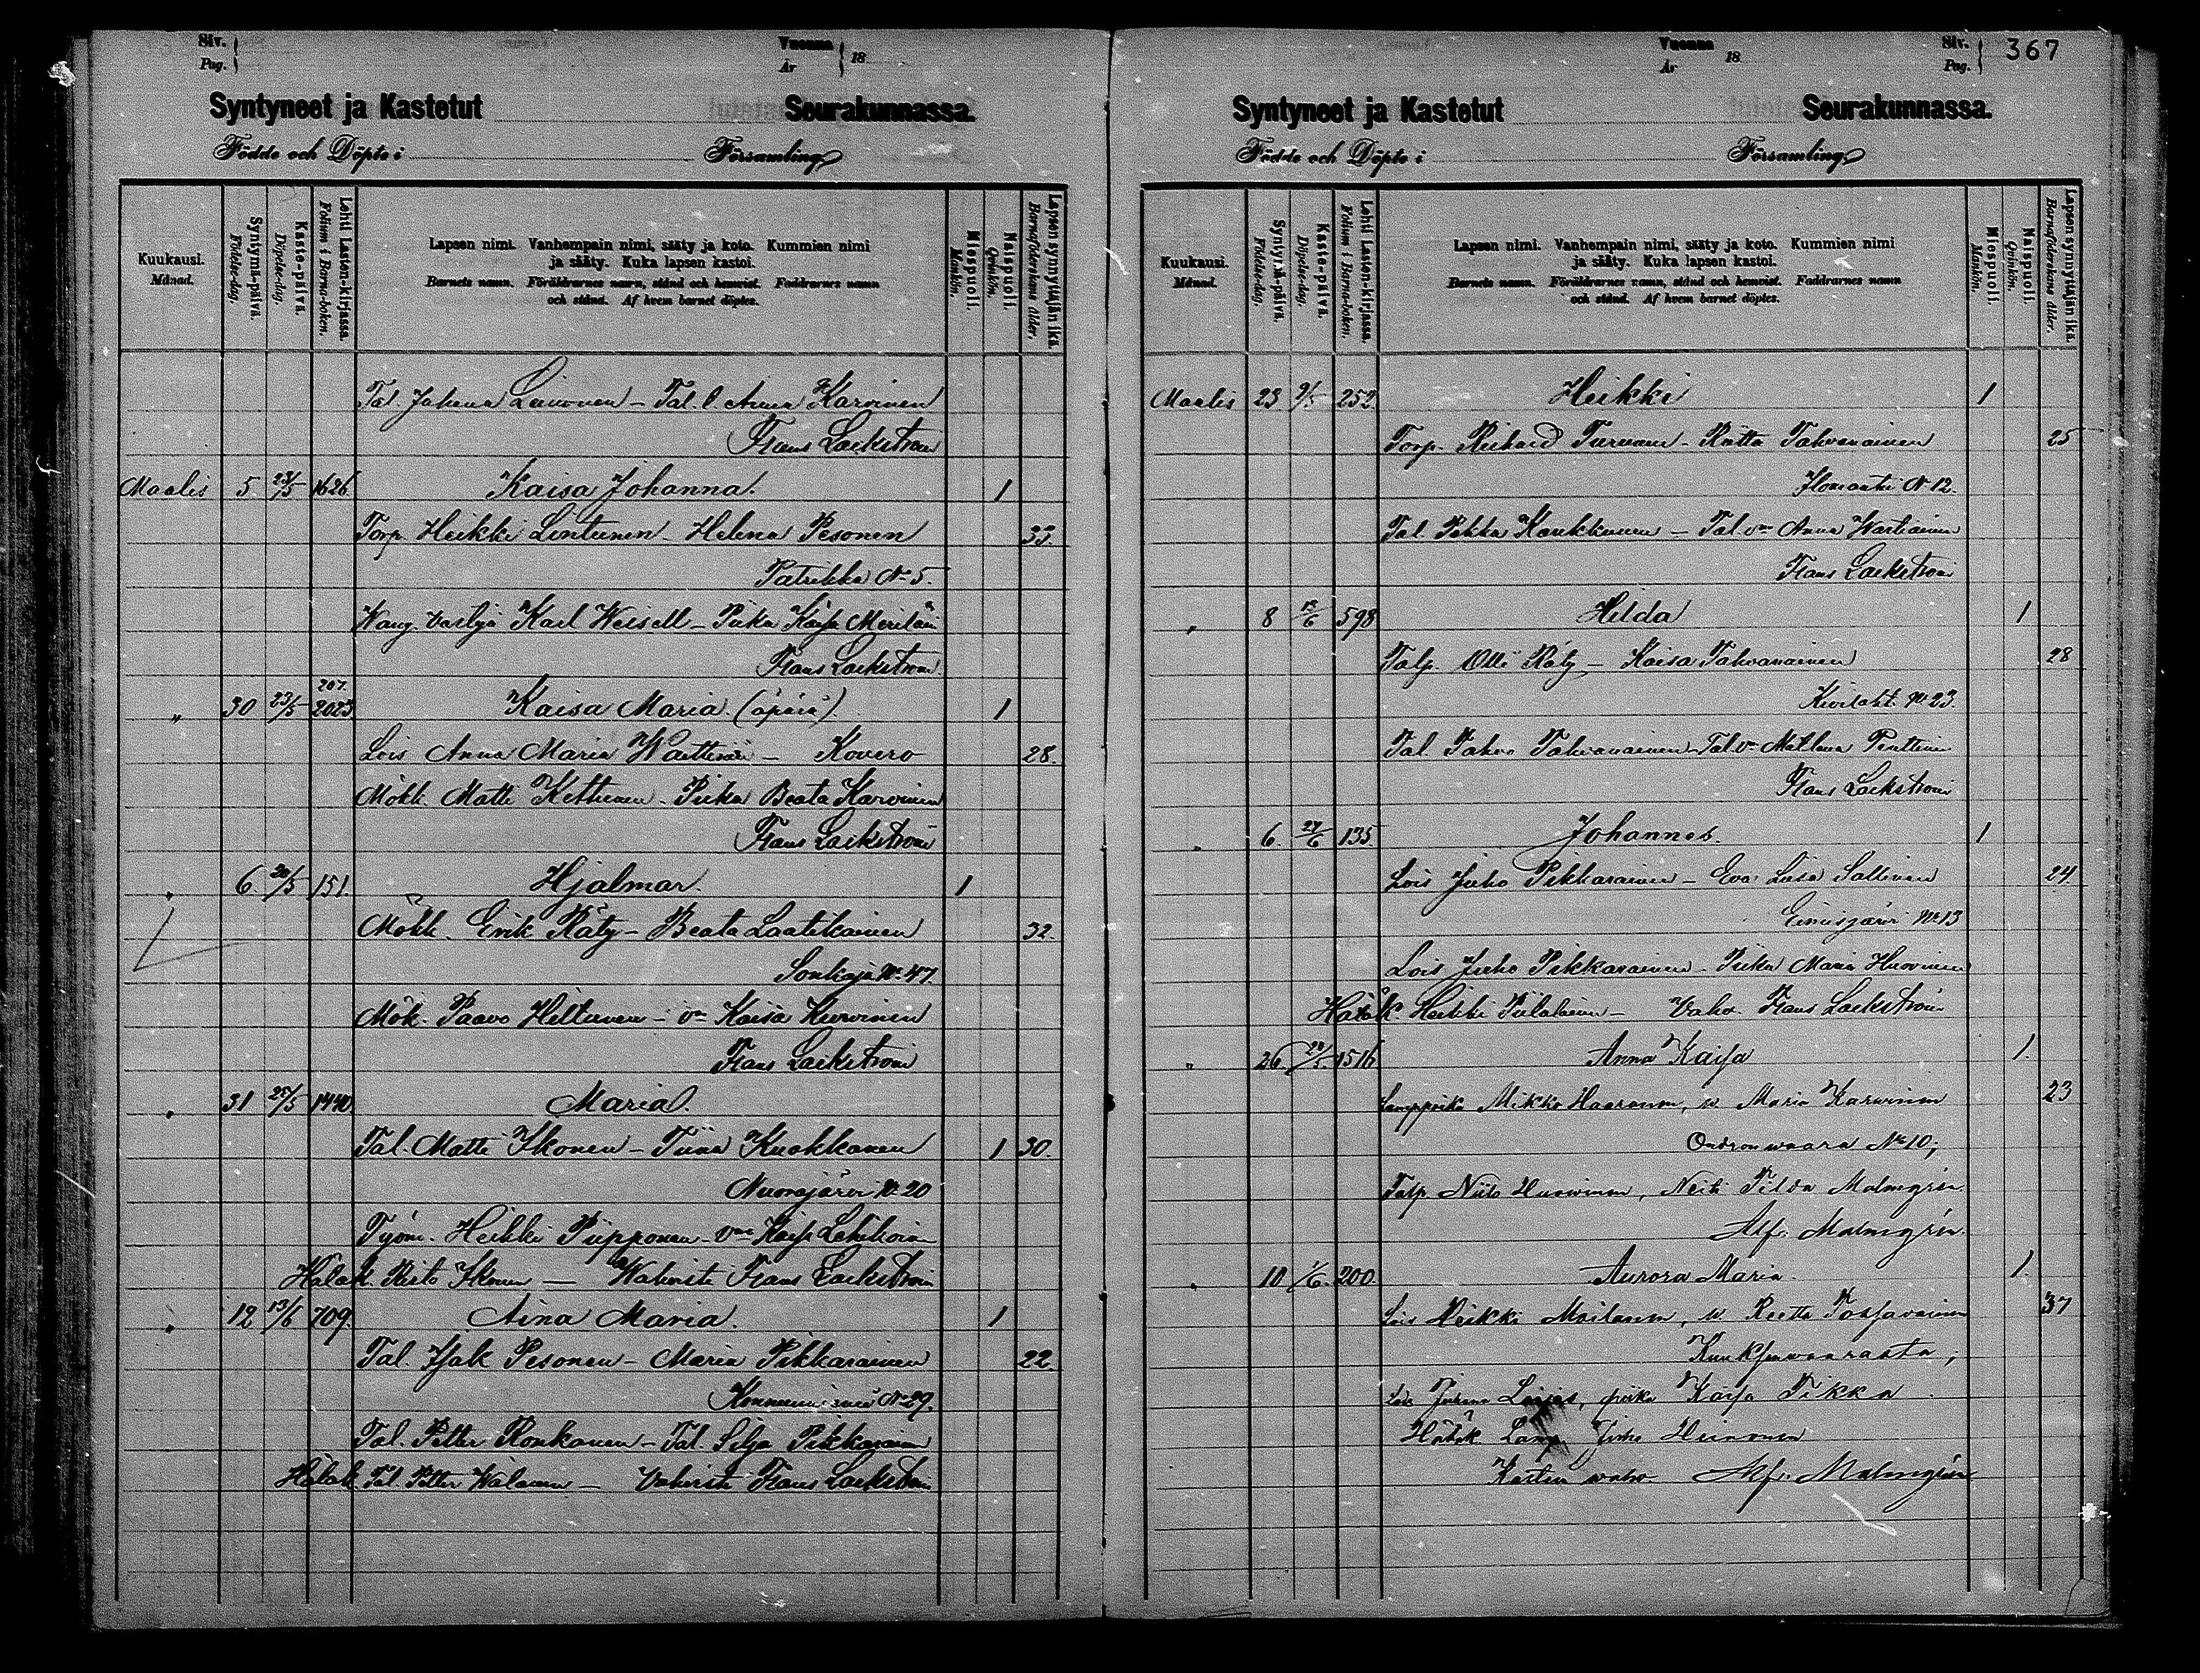 Siv. Pag. Vuonna År 18
Syntyneet ja Kastetut Seurakunnassa.
Födde och Döpte i Församling
Kuukausi. Månad.
Syntymä-päivä. Födelse-dag.
Kaste-päivä. Döpelse-dag.
Lehti Lasten-kirjassa. Folium i Barna-boken.
Lapsen nimi. Vanhempain nimi, sääty ja koto. Kummien nimi
ja sääty. Kuka lapsen kastoi.
Barnets namn. Föräldrarnes namn, stånd och hemvist. Faddrarnes namn
och stånd. Af hvem barnet döptes.
Miespuoli. Mankön.
Naispuoli. Qvinkön.
Lapsen synnyttäjän ikä. Barnaföderskans ålder.
Tal. Juhana Leinonen - Tal. l. Anna Karvinen
Frans Lackström
Maalis 5 23/5 1626 Kaisa Johanna. 1
Torp. Heikki Lintunen - Helena Pesonen 33.
Patrikka No 5.
Wang. vartija Karl Weisell - Piika Kaisa
Frans Lackström
" 30 23/5 207. 2023 Kaisa Maria. (äpärä). 1
Lois Anna Maria - Kovero 28.
Mökk. Matti Kettunen - Piika Beata Karvinen
Frans Lackström
" 6 20/5 151. Hjalmar. 1
Mökk. Erik Räty - Beata Laatikainen 32.
Sonkaja No 47.
Mök. Paavo Hiltunen - vm Kaisa Kurvinen
Frans Lackström
" 31 25/5 1440 Maria.
Tal. Matti Ikonen - Tiina Kuokkanen 1 30.
Nuorajärvi No 20
Työm. Heikki Piipponen - vmo Kaisa Lehikoinen
Hätäk. Risto Ikonen — Wahvisti Frans Lackström
" 12 13/6 709. Aina Maria. 1
Tal. Isak Pesonen - Maria Pikkarainen 22.
No 29.
Tal. Petter Ronkanen - Tal. Silja Pikkarainen
Hätäk. Tal. Petter - Vahvisti Frans Lackström
Vuonna År 18 Siv. Pag. 367
Syntyneet ja Kastetut Seurakunnassa.
Födde och Döpte i Församling
Kuukausi. Månad.
Syntymä-päivä. Födelse-dag.
Kaste-päivä. Döpelse-dag.
Lehti Lasten-kirjassa. Folium i Barna-boken.
Lapsen nimi. Vanhempain nimi, sääty ja koto. Kummien nimi
ja sääty. Kuka lapsen kastoi.
Barnets namn. Föräldrarnes namn, stånd och hemvist. Faddrarnes namn
och stånd. Af hvem barnet döptes.
Miespuoli. Mankön.
Naispuoli. Qvinkön.
Lapsen synnyttäjän ikä. Barnaföderskans ålder.
Maalis 23. 9/5 252. Heikki 1
Torp. Rickard Turunen - Riitta Tahvanainen 25
Ilomantsi No 12.
Tal. Pekka Kaukkunen - Tal. vm Anna Wartiainen
Frans Lackström
" 8 598 Hilda 1
Talp. Olli Räty - Kaisa Tahvanainen 28
Kivilaht. No 23.
Tal. Tahvo Tahvanainen - Tal. vm Matlena Penttinen
Frans Lackström
" 6. 135. Johannes. 1
Lois Juho Pikkarainen - Eva Liisa Sallinen 24.
No 13
Lois Juho Pikkarainen - Piika Maria Huovinen
Hätäk Heikki Piilolainen - Vahv. Frans Lackström
" 26. 1516 Anna Kaisa 1.
Lamppoika Mikko Haaranen, w. Maria Karvinen 23
Ondronwaara No 10;
Talp Niilo Huovinen, Neiti Tilda Malmgrén
Alf. Malmgrén.
" 10 1/6. 200. Aurora Maria. 1.
Lois Heikki Moilanen, w. Reetta Pohjavainen 37
Kuuksenvaarasta;
Lois Juhana, piika Kaisa Tikka.
Hätäk. Lamp. Juho Heinonen
Kasteen wahv. Alf. Malmgrén